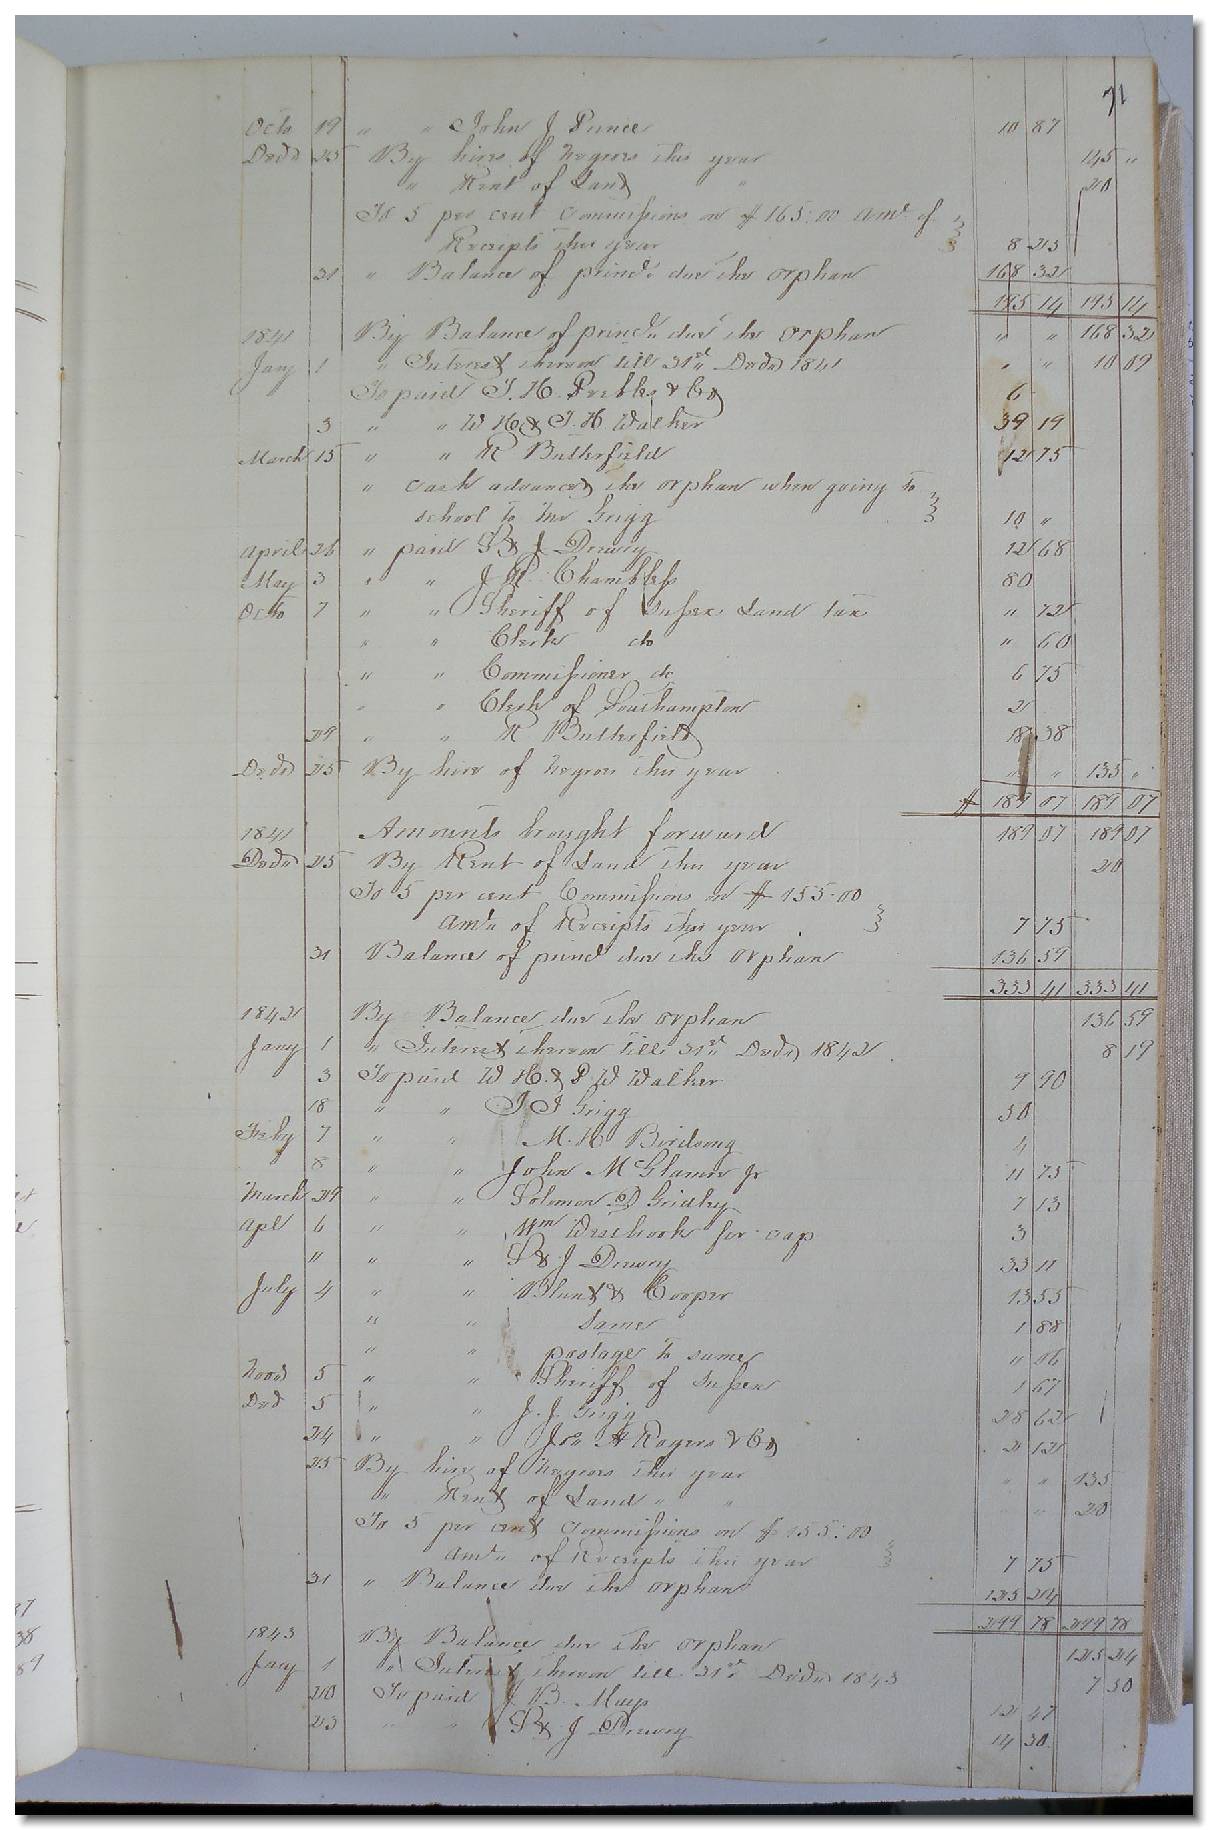 71
Octo 19 " " John J Prince 10 87
Decr 25 By hires of negroes this year 145 "
" Rent of Land " 20
To 5 per cent Commissions on $165.00 amt of
Receipts this year 8 25
31 " Balance of princl due the orphan 168 32
195 14 195 14
1841 By Balance of princl due the orphan " " 168 32
Jany 1 " Interest thereon till 31st Decr 1841 " " 10 09
To paid T. H. Peebles & Co 6
3 " " W H & T. H Walker 39 19
March 15 " " R Butterfield 12 75
" cash advanced the orphan when going to
school to Mr Grigg 10 "
April 26 " paid S & J Drewry 12 68
May 3 " " J R Chambless 80
Octo 7 " " Sheriff of Sussex Land tax " 72
" " Clerk do " 60
" " Commissioner do 6 75
" " Clerk of Southampton 2
29 " " R Butterfield 18 38
Decr 25 By hire of negroes this year " " 135 "
$ 189 07 189 07
1841 Amounts brought forward 189 07 189 07
Decr 25 By Rent of Land this year 20
To 5 per cent Commissions on $155.00
amt of Receipts this year 7 75
31 Balance of princl due the orphan 136 59
333 41 333 41
1842 By Balance due the orphan 136 59
Jany 1 " Interest thereon till 31st Decr 1842 8 19
3 To paid W H. & P W Walker 9 90
18 " " J J Grigg 50
Feby 7 " " M. H Birdsong 4
8 " " John McGlamer Jr 11 75
March 29 " " Solomon D Gridley 7 13
Apl 6 " " Wm Westbrook for cap 3
" " " S & J Drewry 33 11
July 4 " " Blunt & Cooper 13 55
" " Same 1 88
" " postage to same " 06
Novr 5 " " Sheriff of Sussex 1 67
Decr 5 " " J. J. Grigg 28 62
24 " " Jos H Rogers & Co 2 12
25 By hire of negroes this year " " 135
" Rent of Land " " " " 20
To 5 per cent Commissions on $155.00
amt of Receipts this year 7 75
31 " Balance due the orphan 125 24
299 78 299 78
1843 By Balance due the orphan 125 24
Jany 1 " Interest thereon till 31st Decr 1843 7 50
20 To paid J B. Mays 12 47
23 " " S & J Drewry 14 30